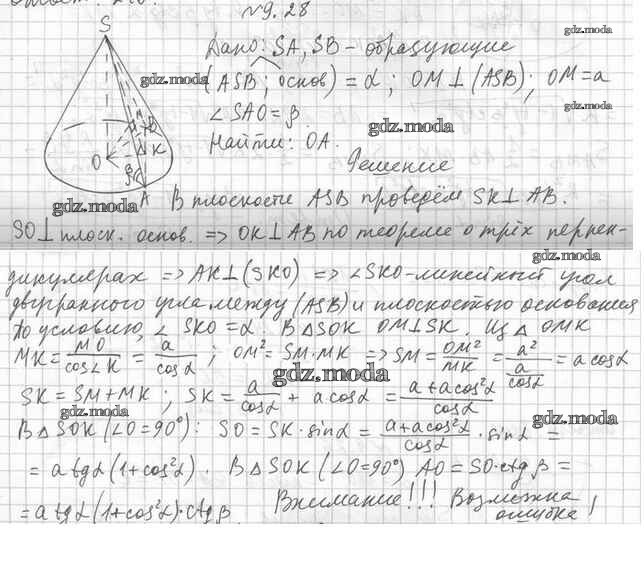 №9.28
Дано: SA, SB – образующие
(ASB; основ) = α; OM⊥(ASB); OM=a
∠SAO=β
Найти: OA.
Решение
В плоскости ASB проведём SK⊥AB.
SO⊥плоск. основ. => OK⊥AB по теореме о трёх перпен-
дикулярах => AK⊥(SKO) => ∠SKO-линейный угол
двугранного угла между (ASB) и плоскостью основания
По условию, ∠SKO=α. В △SOK OM⊥SK. Из △OMK
MK = MO/cos∠K = a/cosα; OM²=SM·MK => SM = OM²/MK = a²/(a/cosα) = a cosα
SK = SM+MK; SK = a/cosα + a cosα = (a+a cos²α)/cosα
В △SOK (∠O=90°): SO = SK·sinα = (a+a cos²α)/cosα · sinα =
= a tgα(1+cos²α). В △SOK (∠O=90°) AO = SO·ctgβ =
= a tgα(1+cos²α)·ctgβ.
Внимание!!! Возможна
ошибка!
S
M
B
K
O
β
A
gdz.moda
gdz.moda
gdz.moda
gdz.moda
gdz.moda
gdz.moda
gdz.moda
gdz.moda
gdz.moda